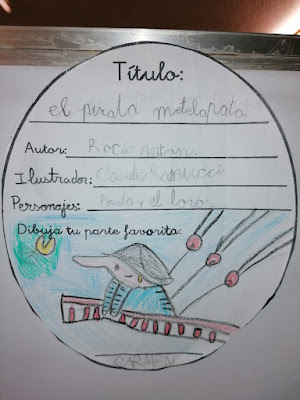 Título:
el pirata metelapata.
Autor: Rocío Anton.
Ilustrador: Claudia Ranucci.
Personajes: Pirata y el loro.
Dibuja tu parte favorita:
CARMEN